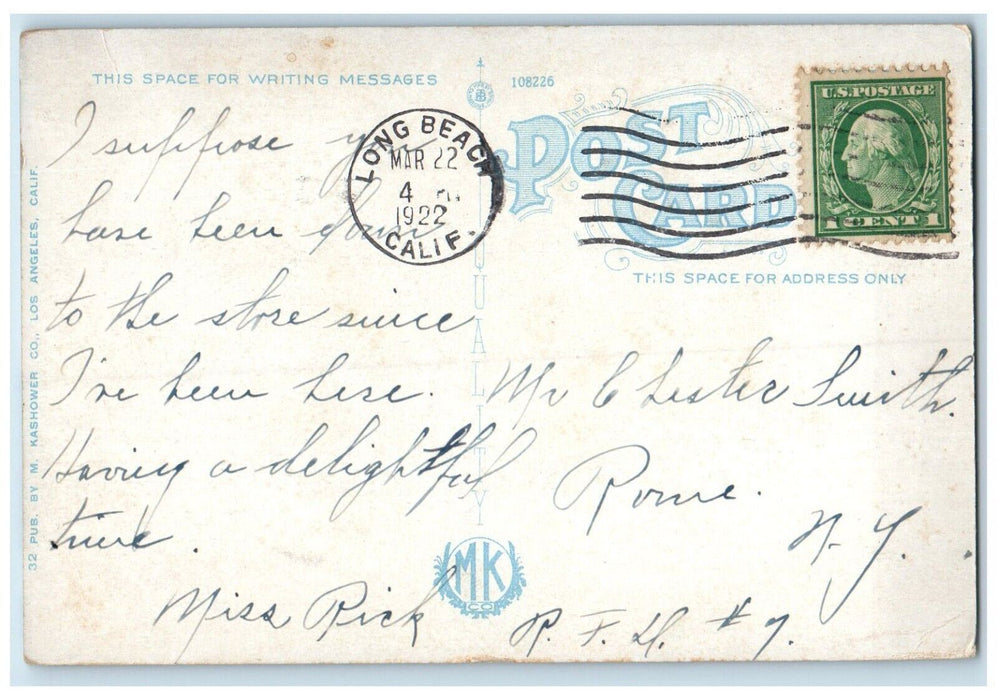 THIS SPACE FOR WRITING MESSAGES
I suppose you
have been down
to the store since
I've been here.
Having a delightful
time.
Miss Rick
32 PUB. BY M. KASHOWER CO., LOS ANGELES, CALIF.
108226
QUALITY
MK
CO
LONG BEACH
MAR 22
4 PM
1922
CALIF.
POST CARD
U.S. POSTAGE
1 CENT 1
THIS SPACE FOR ADDRESS ONLY
Mr Chester Smith.
Rome.
N. Y.
R. F. D. # 7.